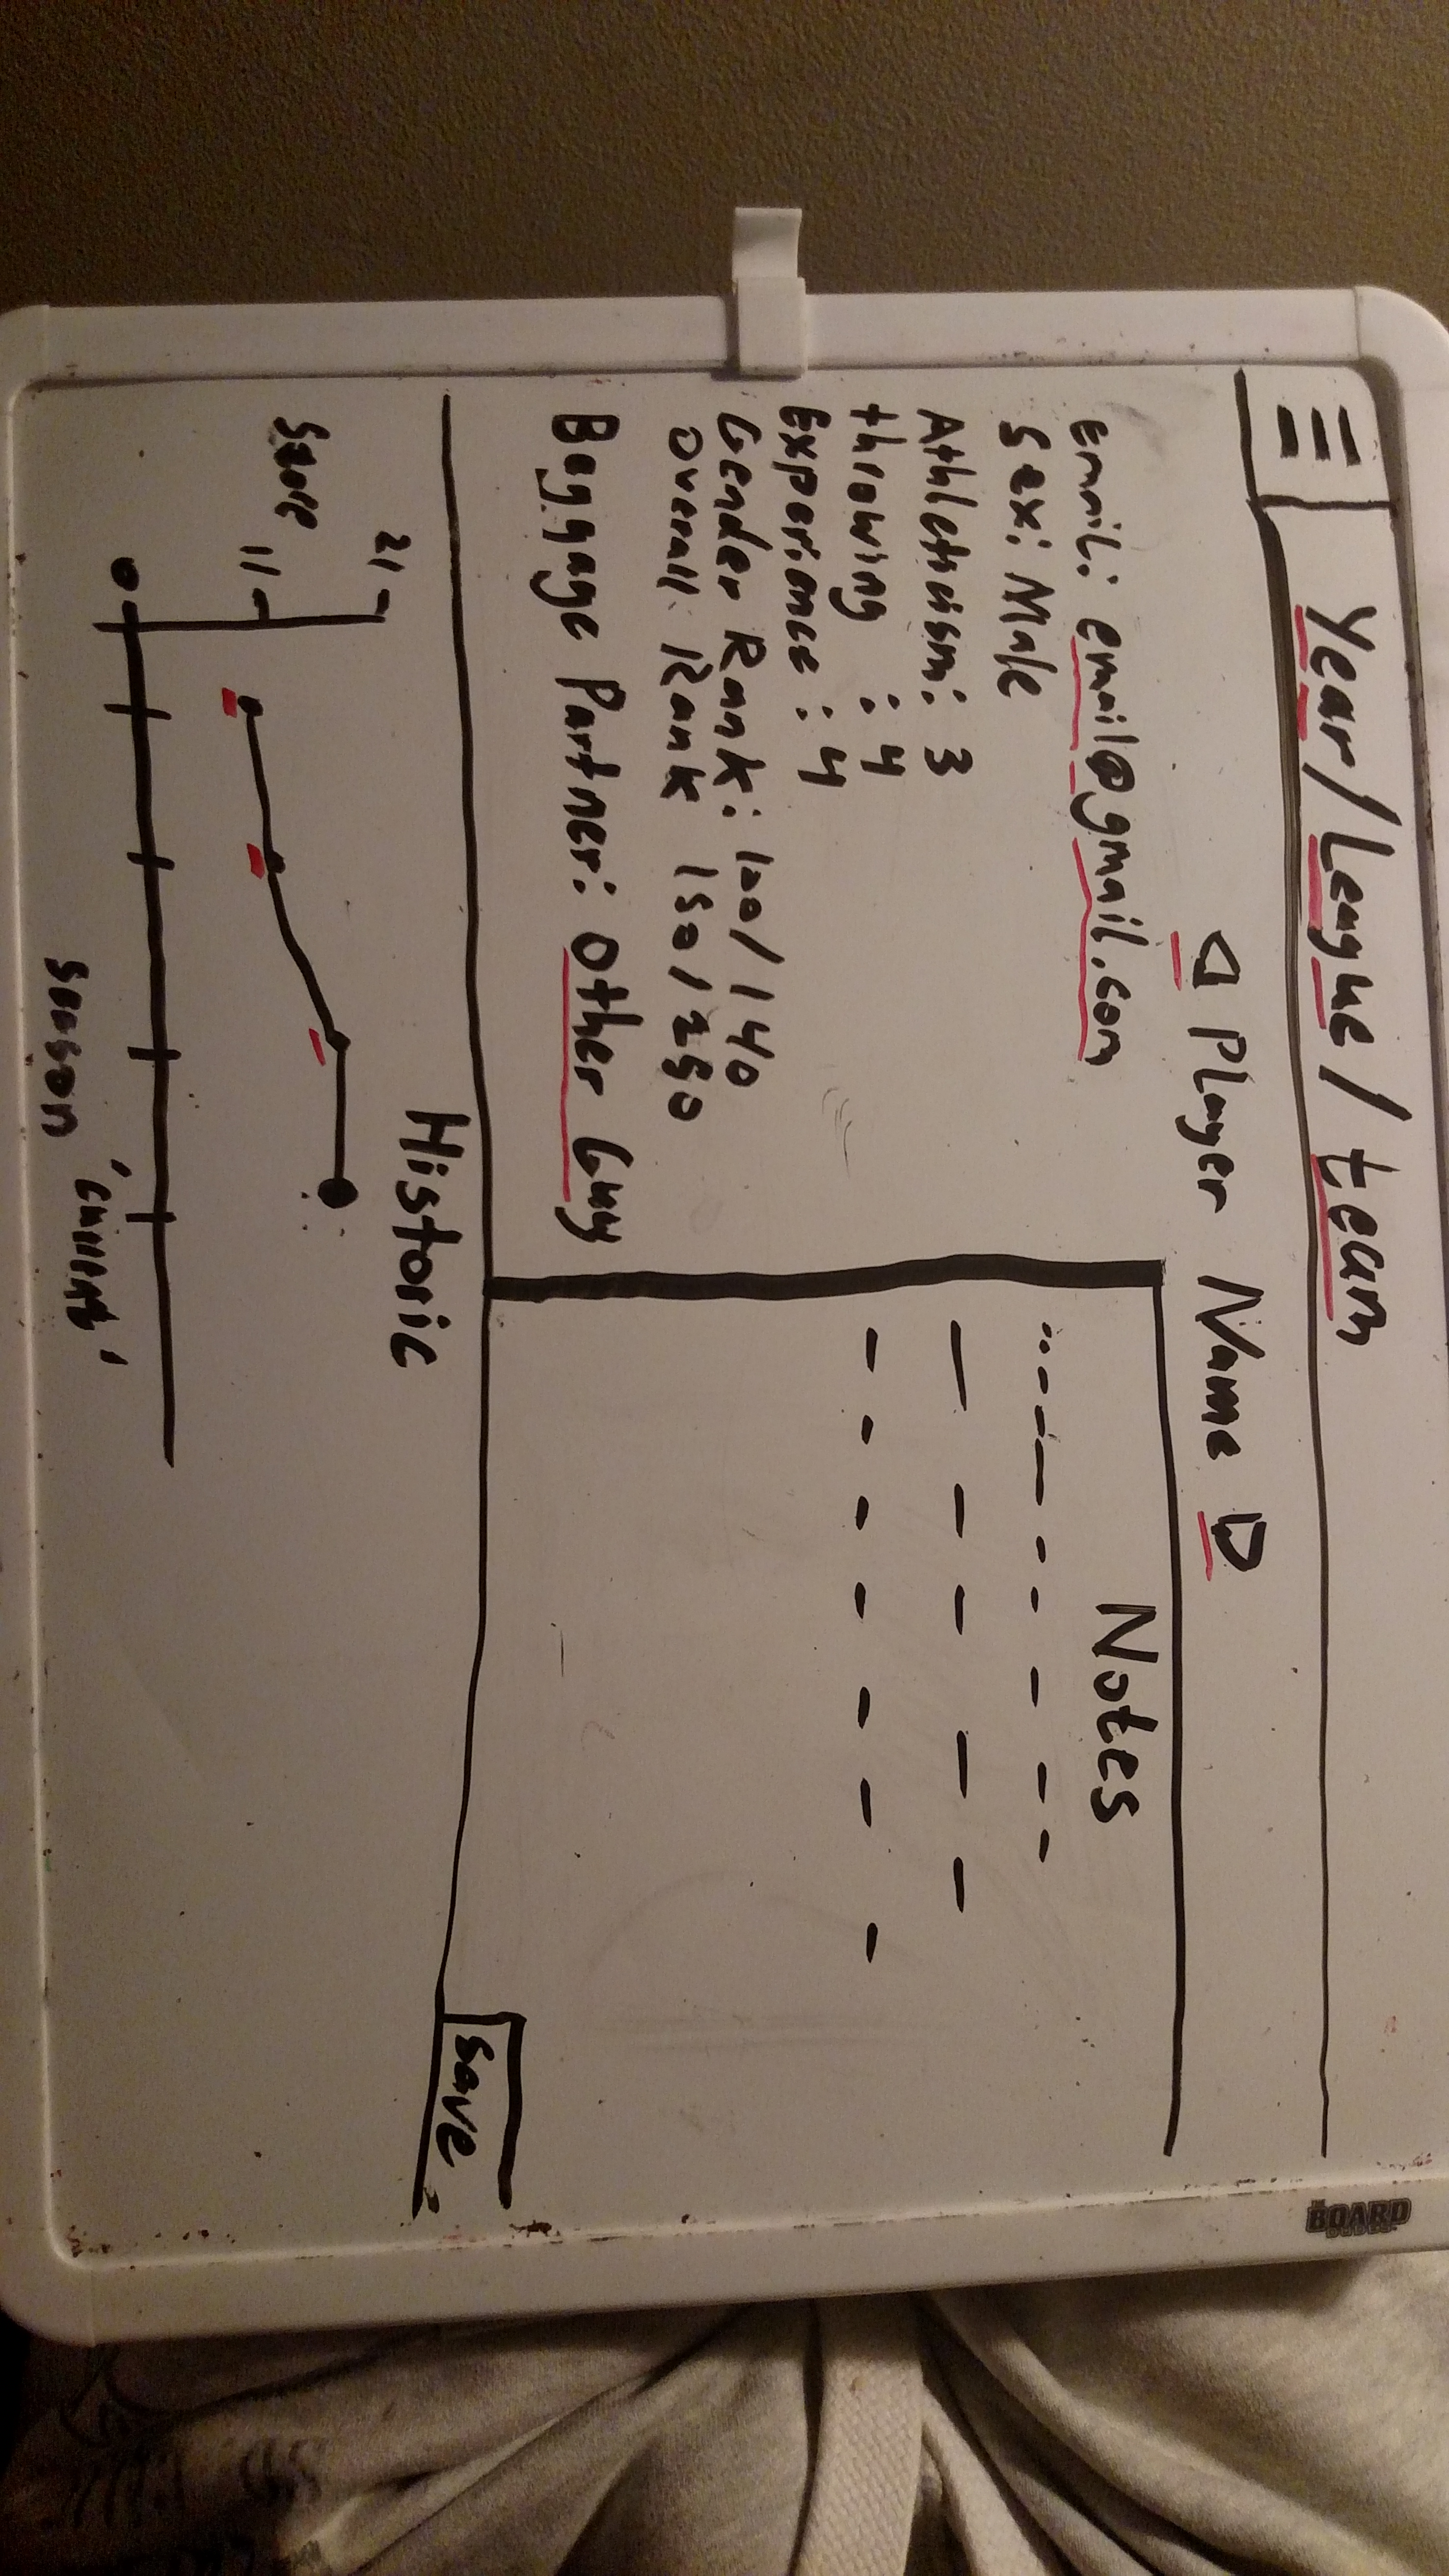 Year/League/team
BOARD
Player Name
Email: email@gmail.com
Sex: Male
Athleticism: 3
throwing : 4
Experience : 4
Gender Rank: 100/140
Overall Rank 150/250
Baggage Partner: Other Guy
Notes
Save
Historic
21
Score
11
0
season 'current'